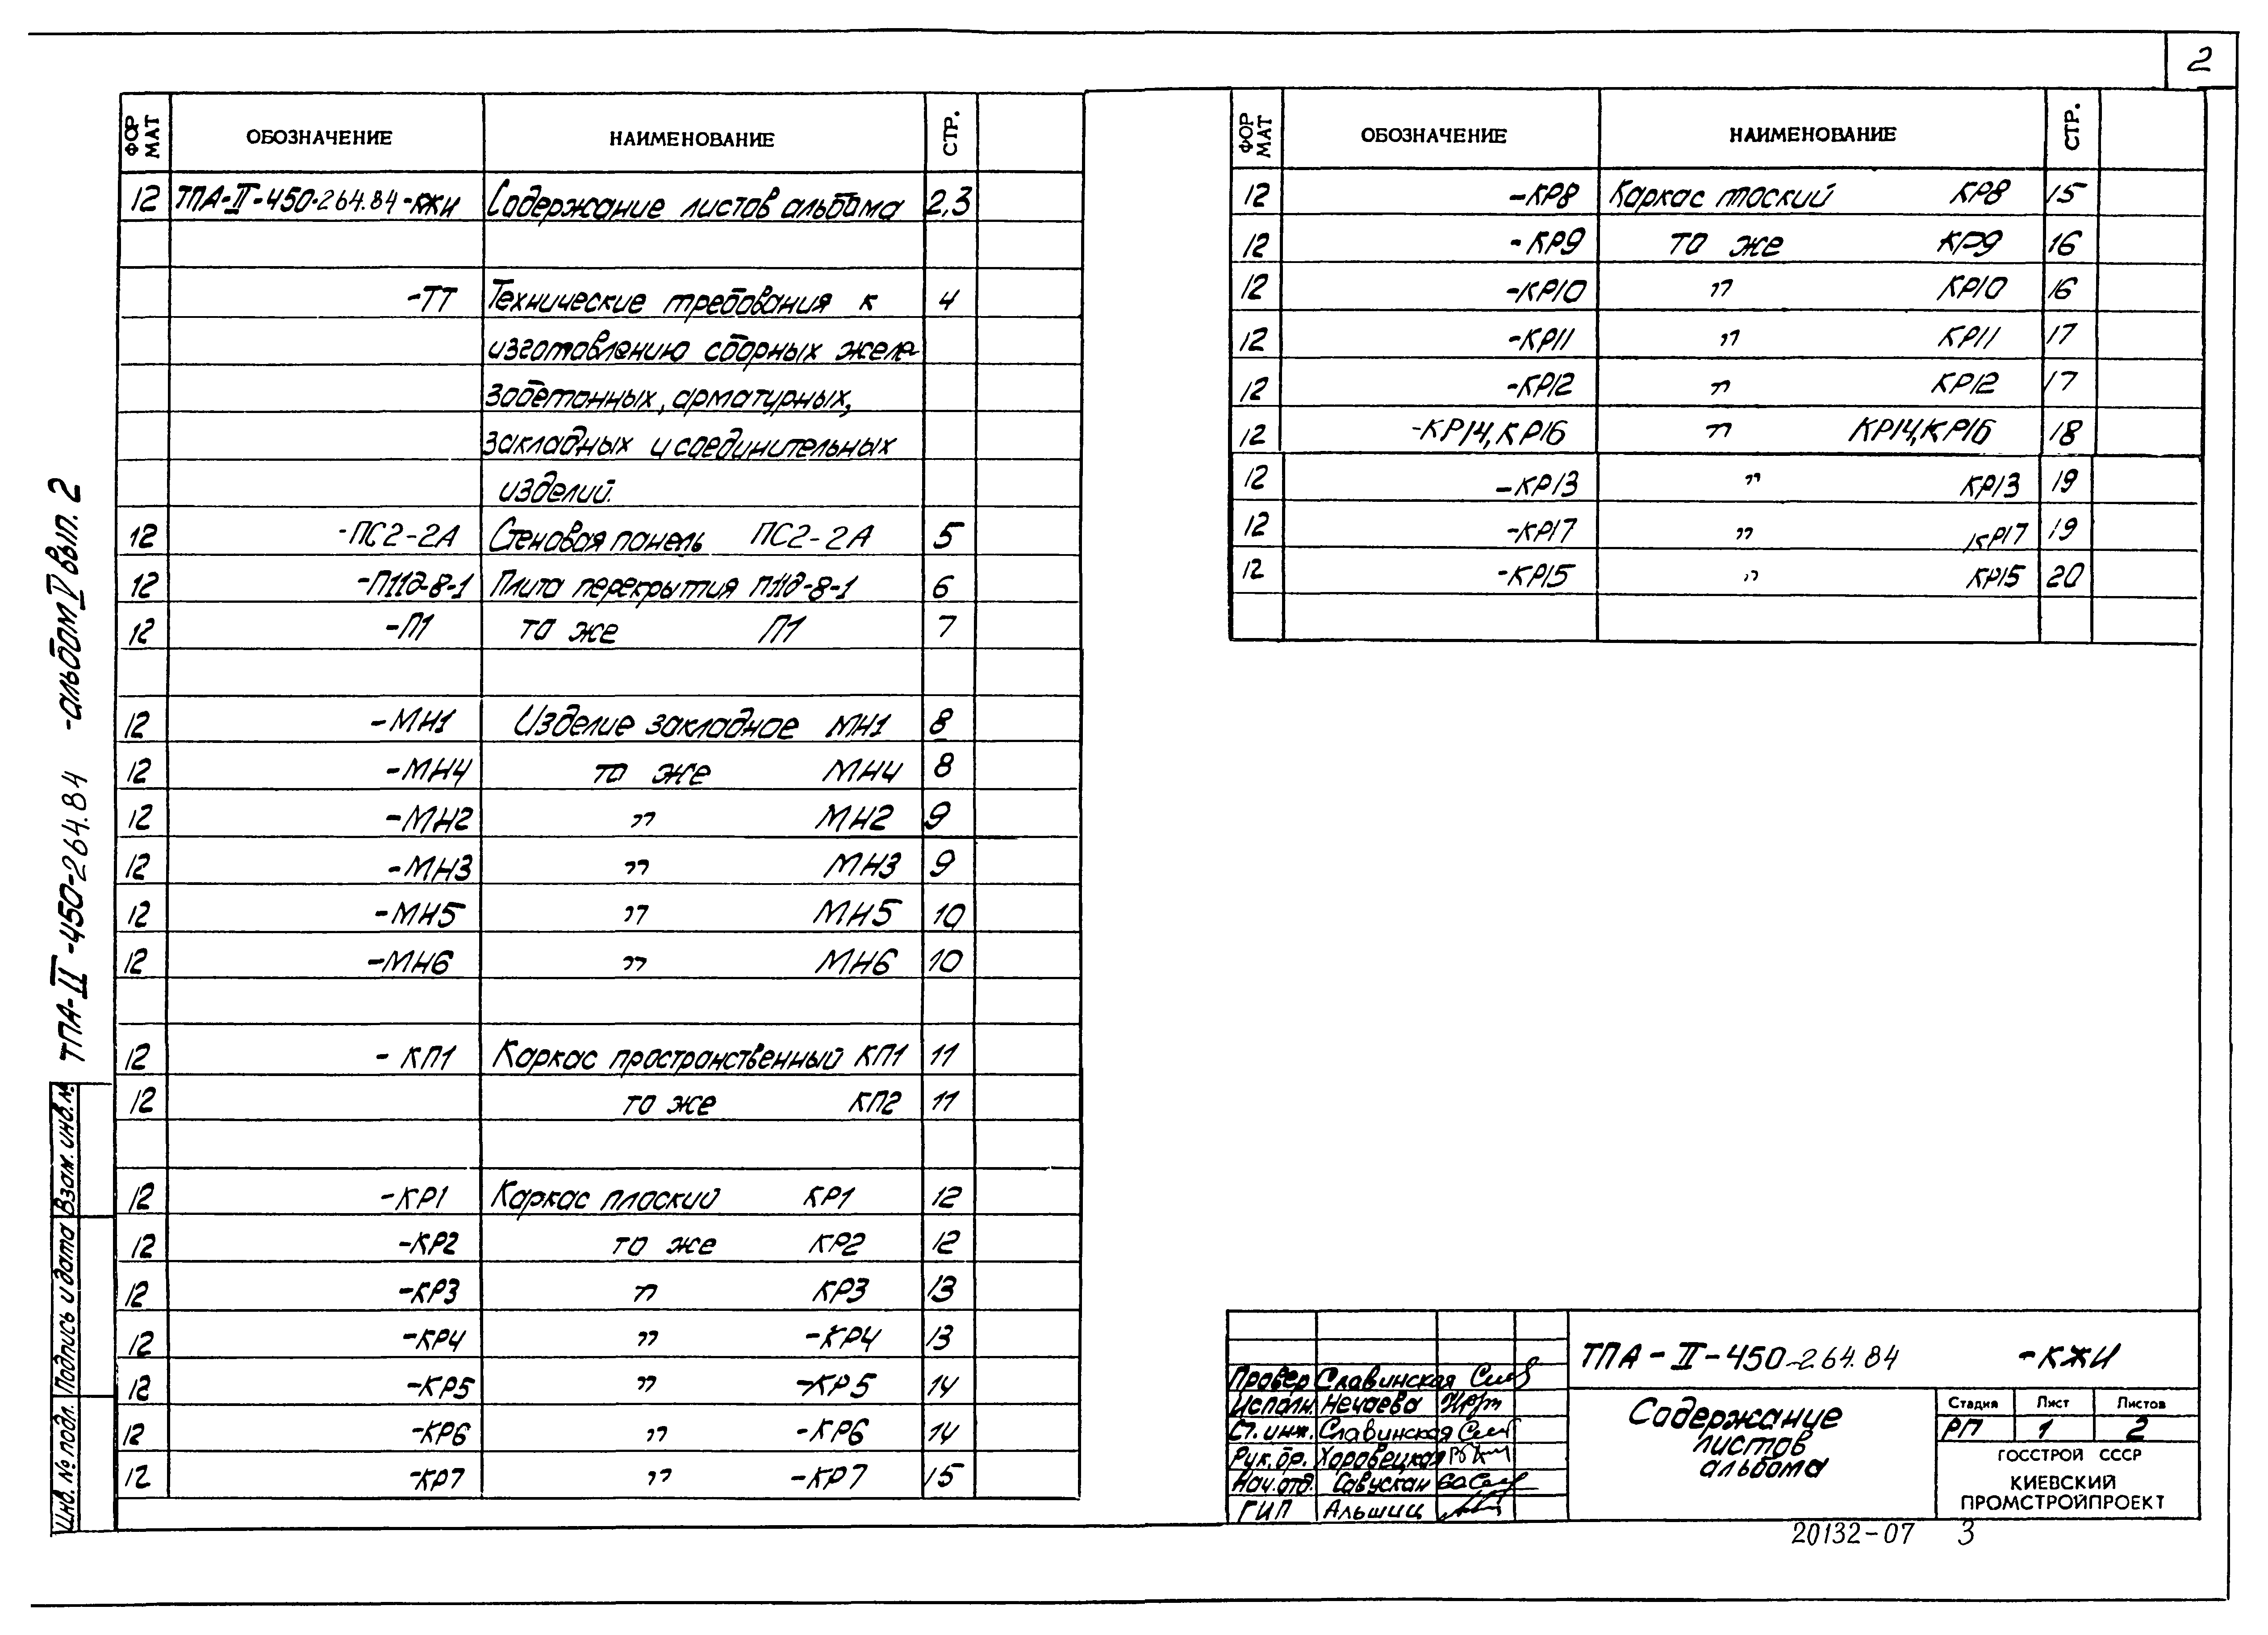 2
ФОРМАТ ОБОЗНАЧЕНИЕ НАИМЕНОВАНИЕ СТР.
12 ТПА-II-450-264.84-КЖИ Содержание листов альбома 2,3
-ТТ Технические требования к 4
изготовлению сборных желе-
зобетонных, арматурных,
закладных и соединительных
изделий.
12 -ПС2-2А Стеновая панель ПС2-2А 5
12 -П11д-8-1 Плита перекрытия П11д-8-1 6
12 -П1 то же П1 7
12 -МН1 Изделие закладное МН1 8
12 -МН4 то же МН4 8
12 -МН2 " МН2 9
12 -МН3 " МН3 9
12 -МН5 " МН5 10
12 -МН6 " МН6 10
12 - КП1 Каркас пространственный КП1 11
12 то же КП2 11
12 -КР1 Каркас плоский КР1 12
12 -КР2 то же КР2 12
12 -КР3 " КР3 13
12 -КР4 " -КР4 13
12 -КР5 " -КР5 14
12 -КР6 " -КР6 14
12 -КР7 " -КР7 15
ФОРМАТ ОБОЗНАЧЕНИЕ НАИМЕНОВАНИЕ СТР.
12 -КР8 Каркас плоский КР8 15
12 -КР9 то же КР9 16
12 -КР10 " КР10 16
12 -КР11 " КР11 17
12 -КР12 " КР12 17
12 -КР14,КР16 " КР14,КР16 18
12 -КР13 " КР13 19
12 -КР17 " КР17 19
12 -КР15 " КР15 20
ТПА-II-450-264.84 -альбом V вып. 2
Инв. № подл. Подпись и дата Взам. инв. №
ТПА-II-450-264.84 -КЖИ
Провер Славинская
Исполн. Нечаева
Ст. инж. Славинская
Рук. бр. Хоровецкая
Нач. отд. Савускан
ГИП Альшиц
Содержание
листов
альбома
Стадия Лист Листов
РП 1 2
ГОССТРОЙ СССР
КИЕВСКИЙ
ПРОМСТРОЙПРОЕКТ
20132-07 3